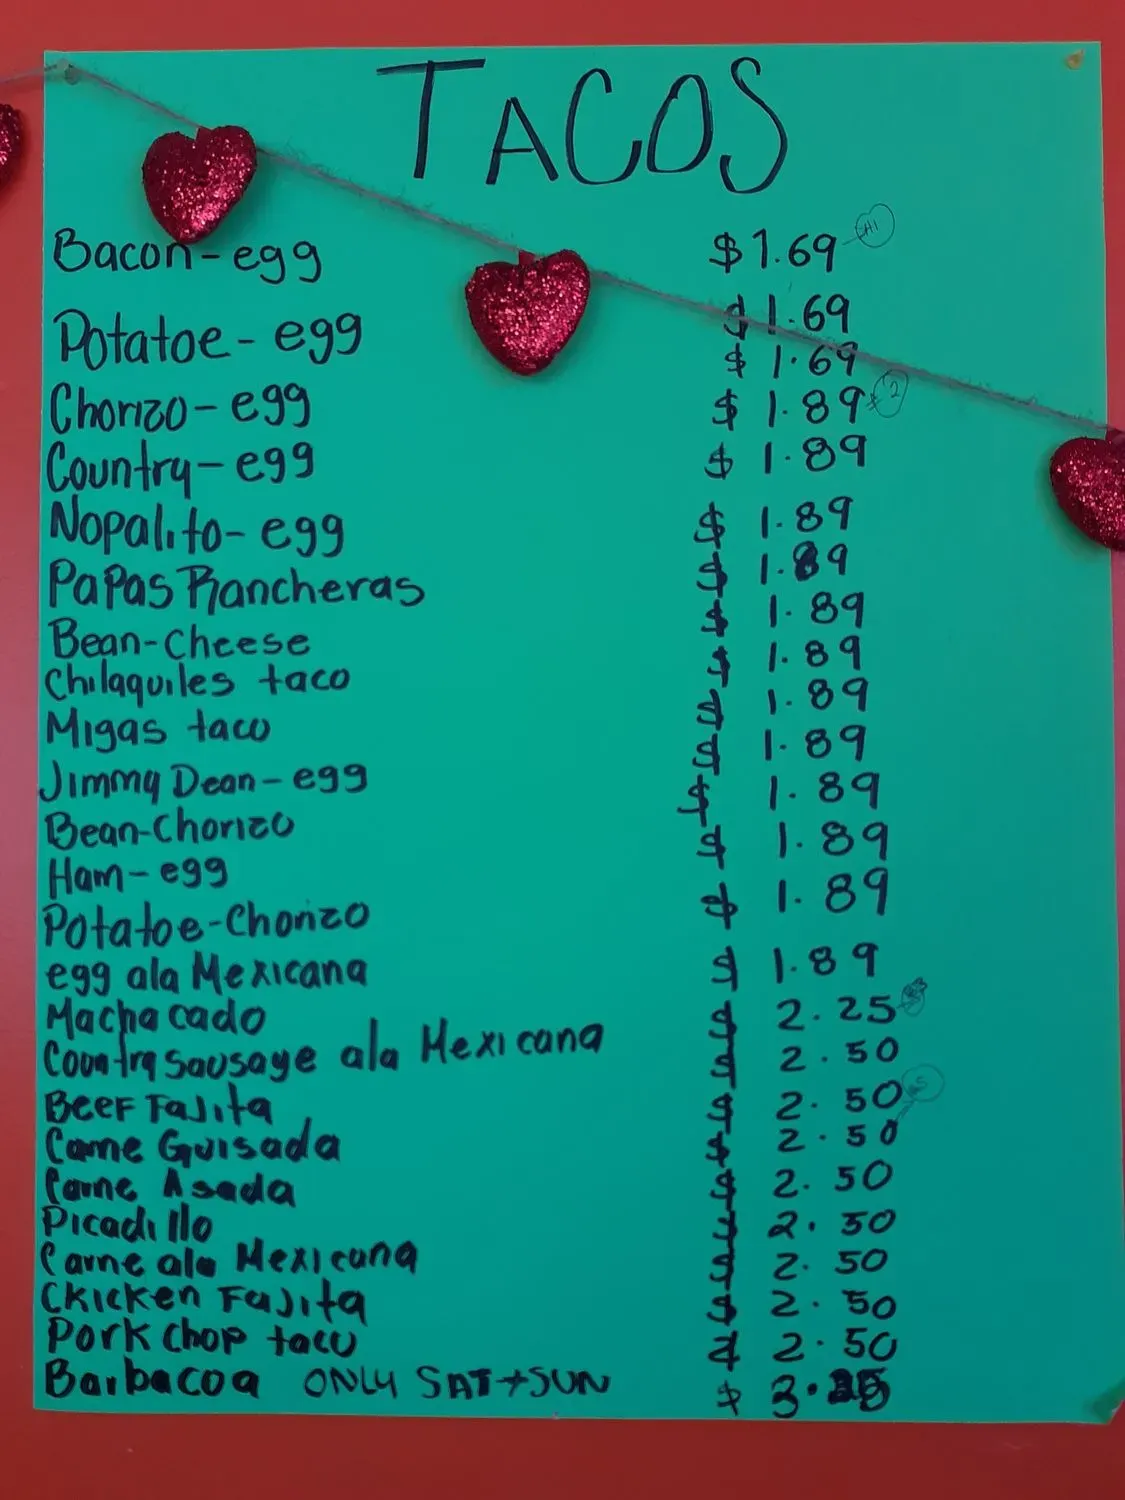 TACOS
Bacon-egg $1.69 #1
Potatoe-egg $1.69
$1.69
Chorizo-egg $1.89 #2
Country-egg $1.89
Nopalito-egg $1.89
Papas Rancheras $1.89
Bean-Cheese $1.89
Chilaquiles taco $1.89
Migas taco $1.89
Jimmy Dean-egg $1.89
Bean-Chorizo $1.89
Ham-egg $1.89
Potatoe-Chorizo $1.89
egg ala Mexicana $1.89
Machacado $2.25
Country sausage ala Mexicana $2.50
Beef Fajita $2.50
Carne Guisada $2.50
Carne Asada $2.50
Picadillo $2.50
Carne ala Mexicana $2.50
Ckicken Fajita $2.50
Pork chop taco $2.50
Barbacoa ONLY SAT+SUN $